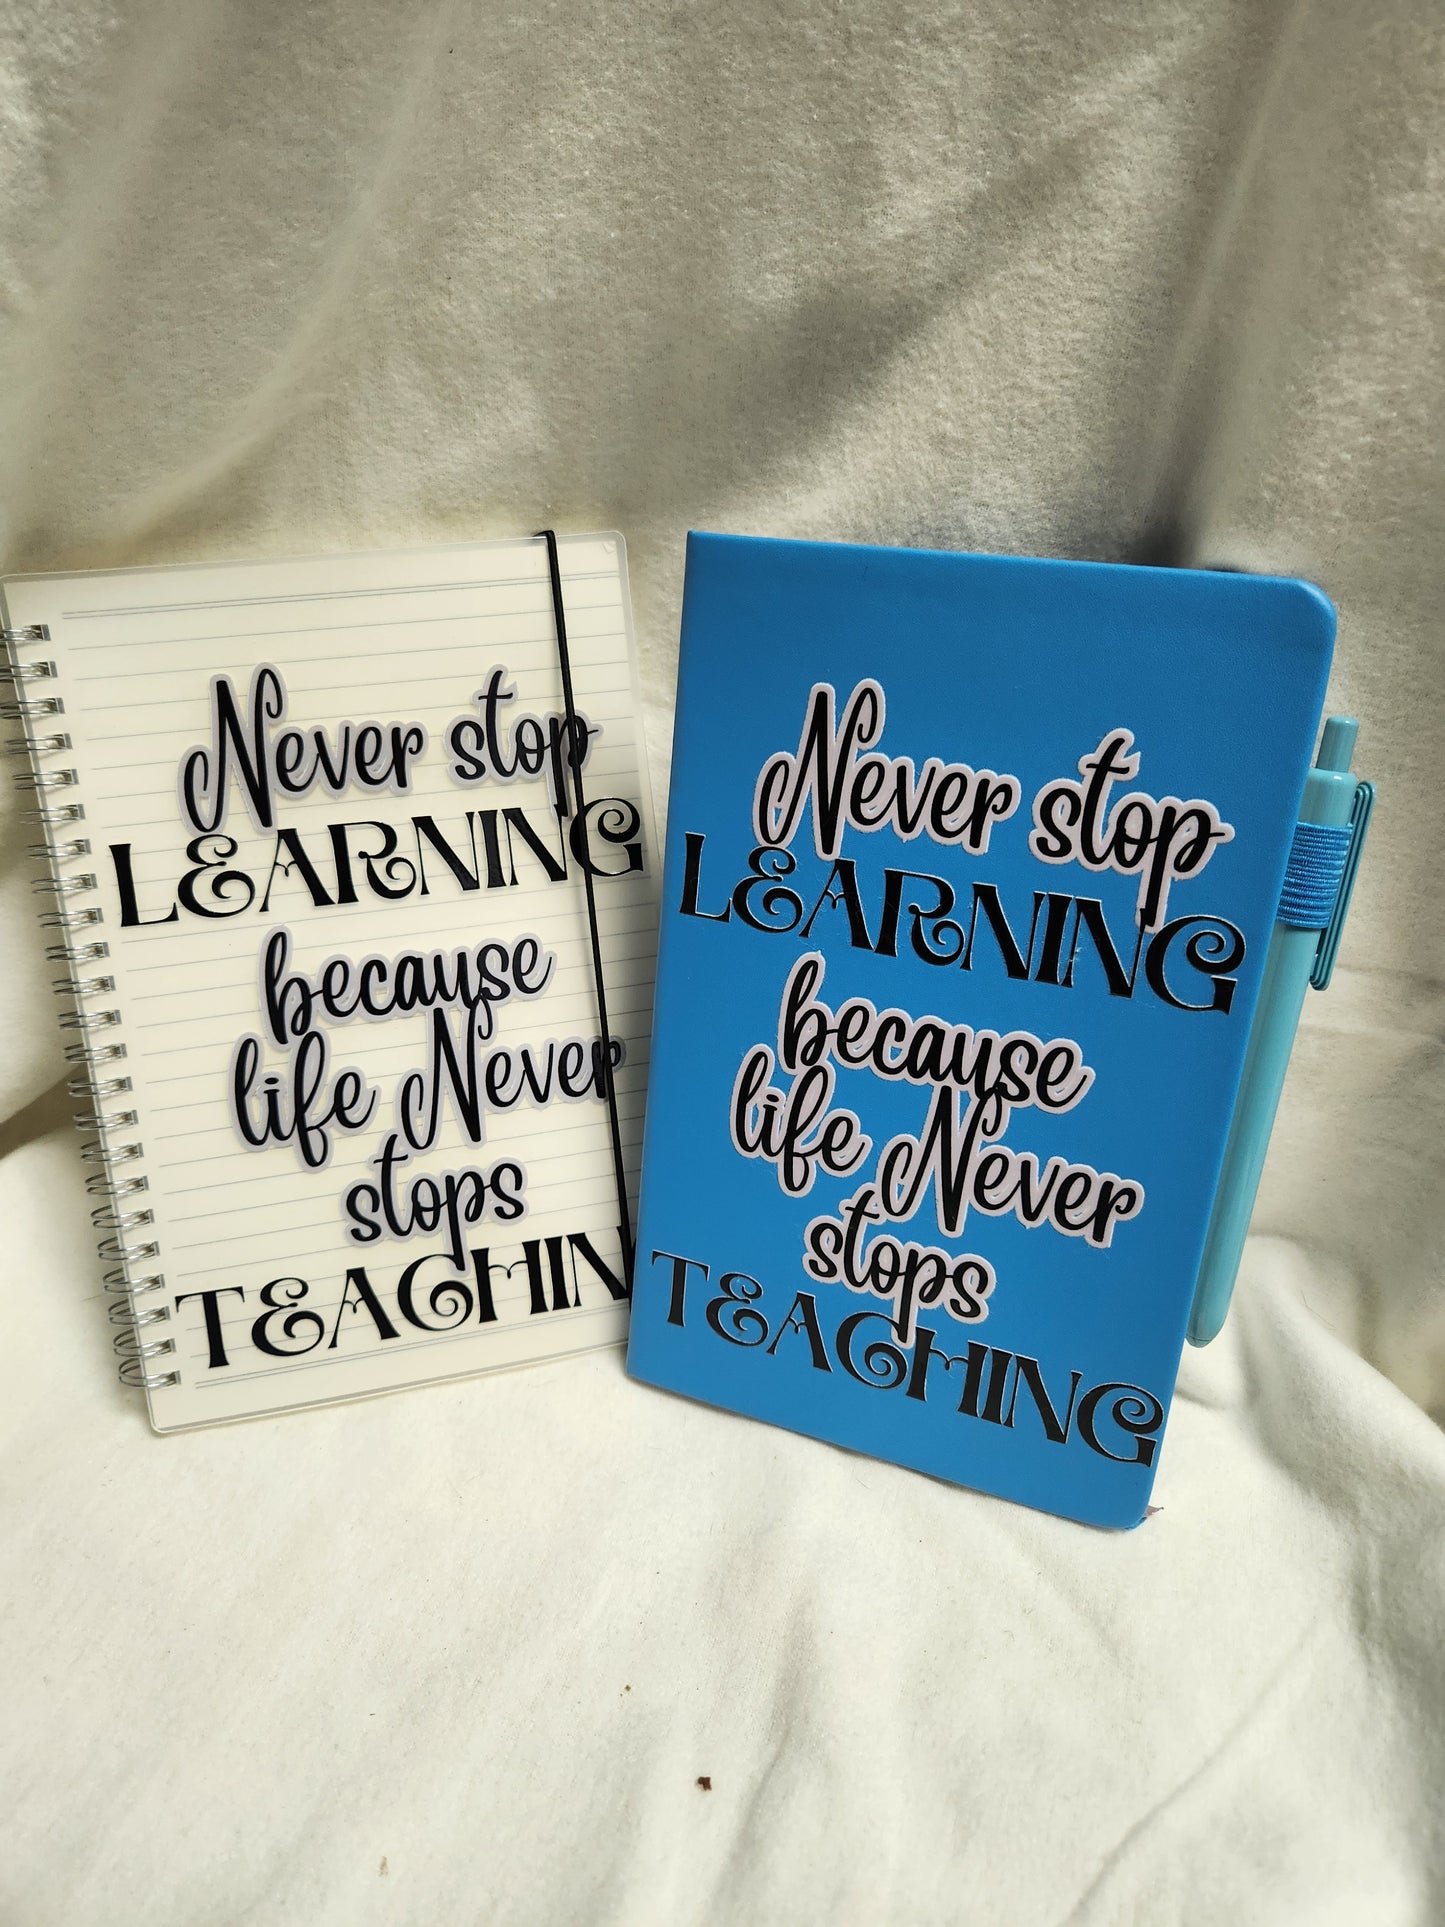 Never stop
LEARNING
because
life Never
stops
TEACHIN
Never stop
LEARNING
because
life Never
stops
TEACHING